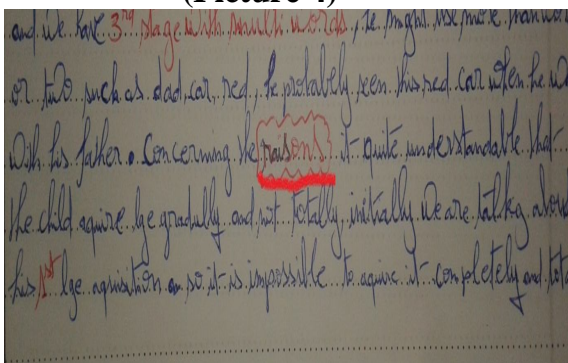 (Picture 4)
and we have 3rd stage with multi words, he might use more than wor
or two such as dad, car, red, he probably seen his red car when he w
with his father. Concerning the raisons it quite understandable that
the child aquire lge gradually and not totally initially we are talkg abou
his 1st lge aquisition so it is impossible to aquire it completely and tota